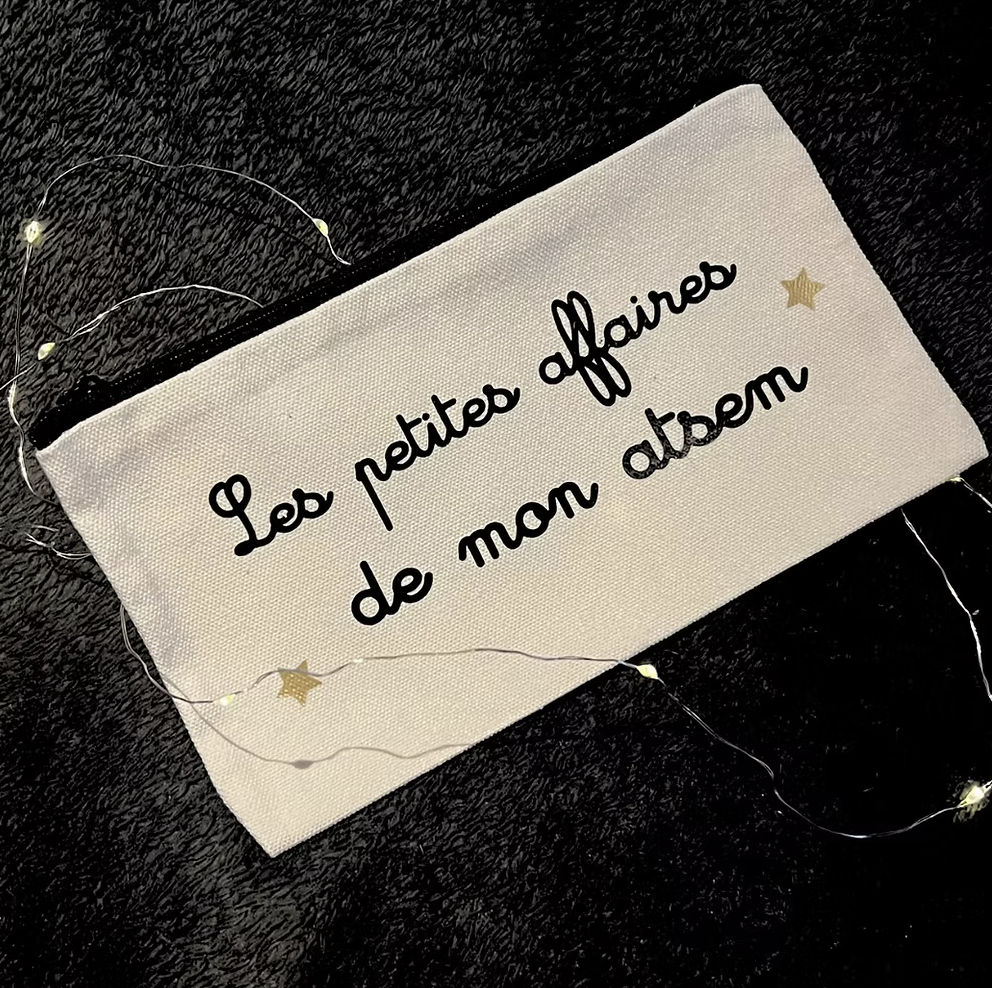 Les petites affaires
de mon atsem